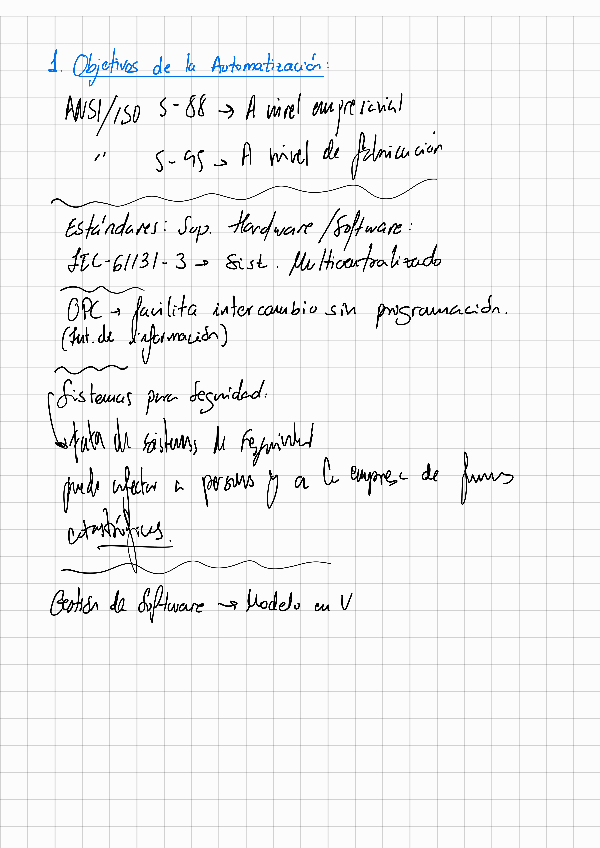 1. Objetivos de la Automatización:
ANSI/ISO S-88 → A nivel empresarial
" S-95 → A nivel de fabricación
Estándares: Sup. Hardware/Software:
IEC-61131-3 → Sist. Multicentralizado
OPC → facilita intercambio sin programación.
(Int. de información)
Sistemas para Seguridad.
→ falta de sistemas de seguridad
puede afectar a personas y a la empresa de formas
catastróficas.
Gestión de Software → Modelo en V